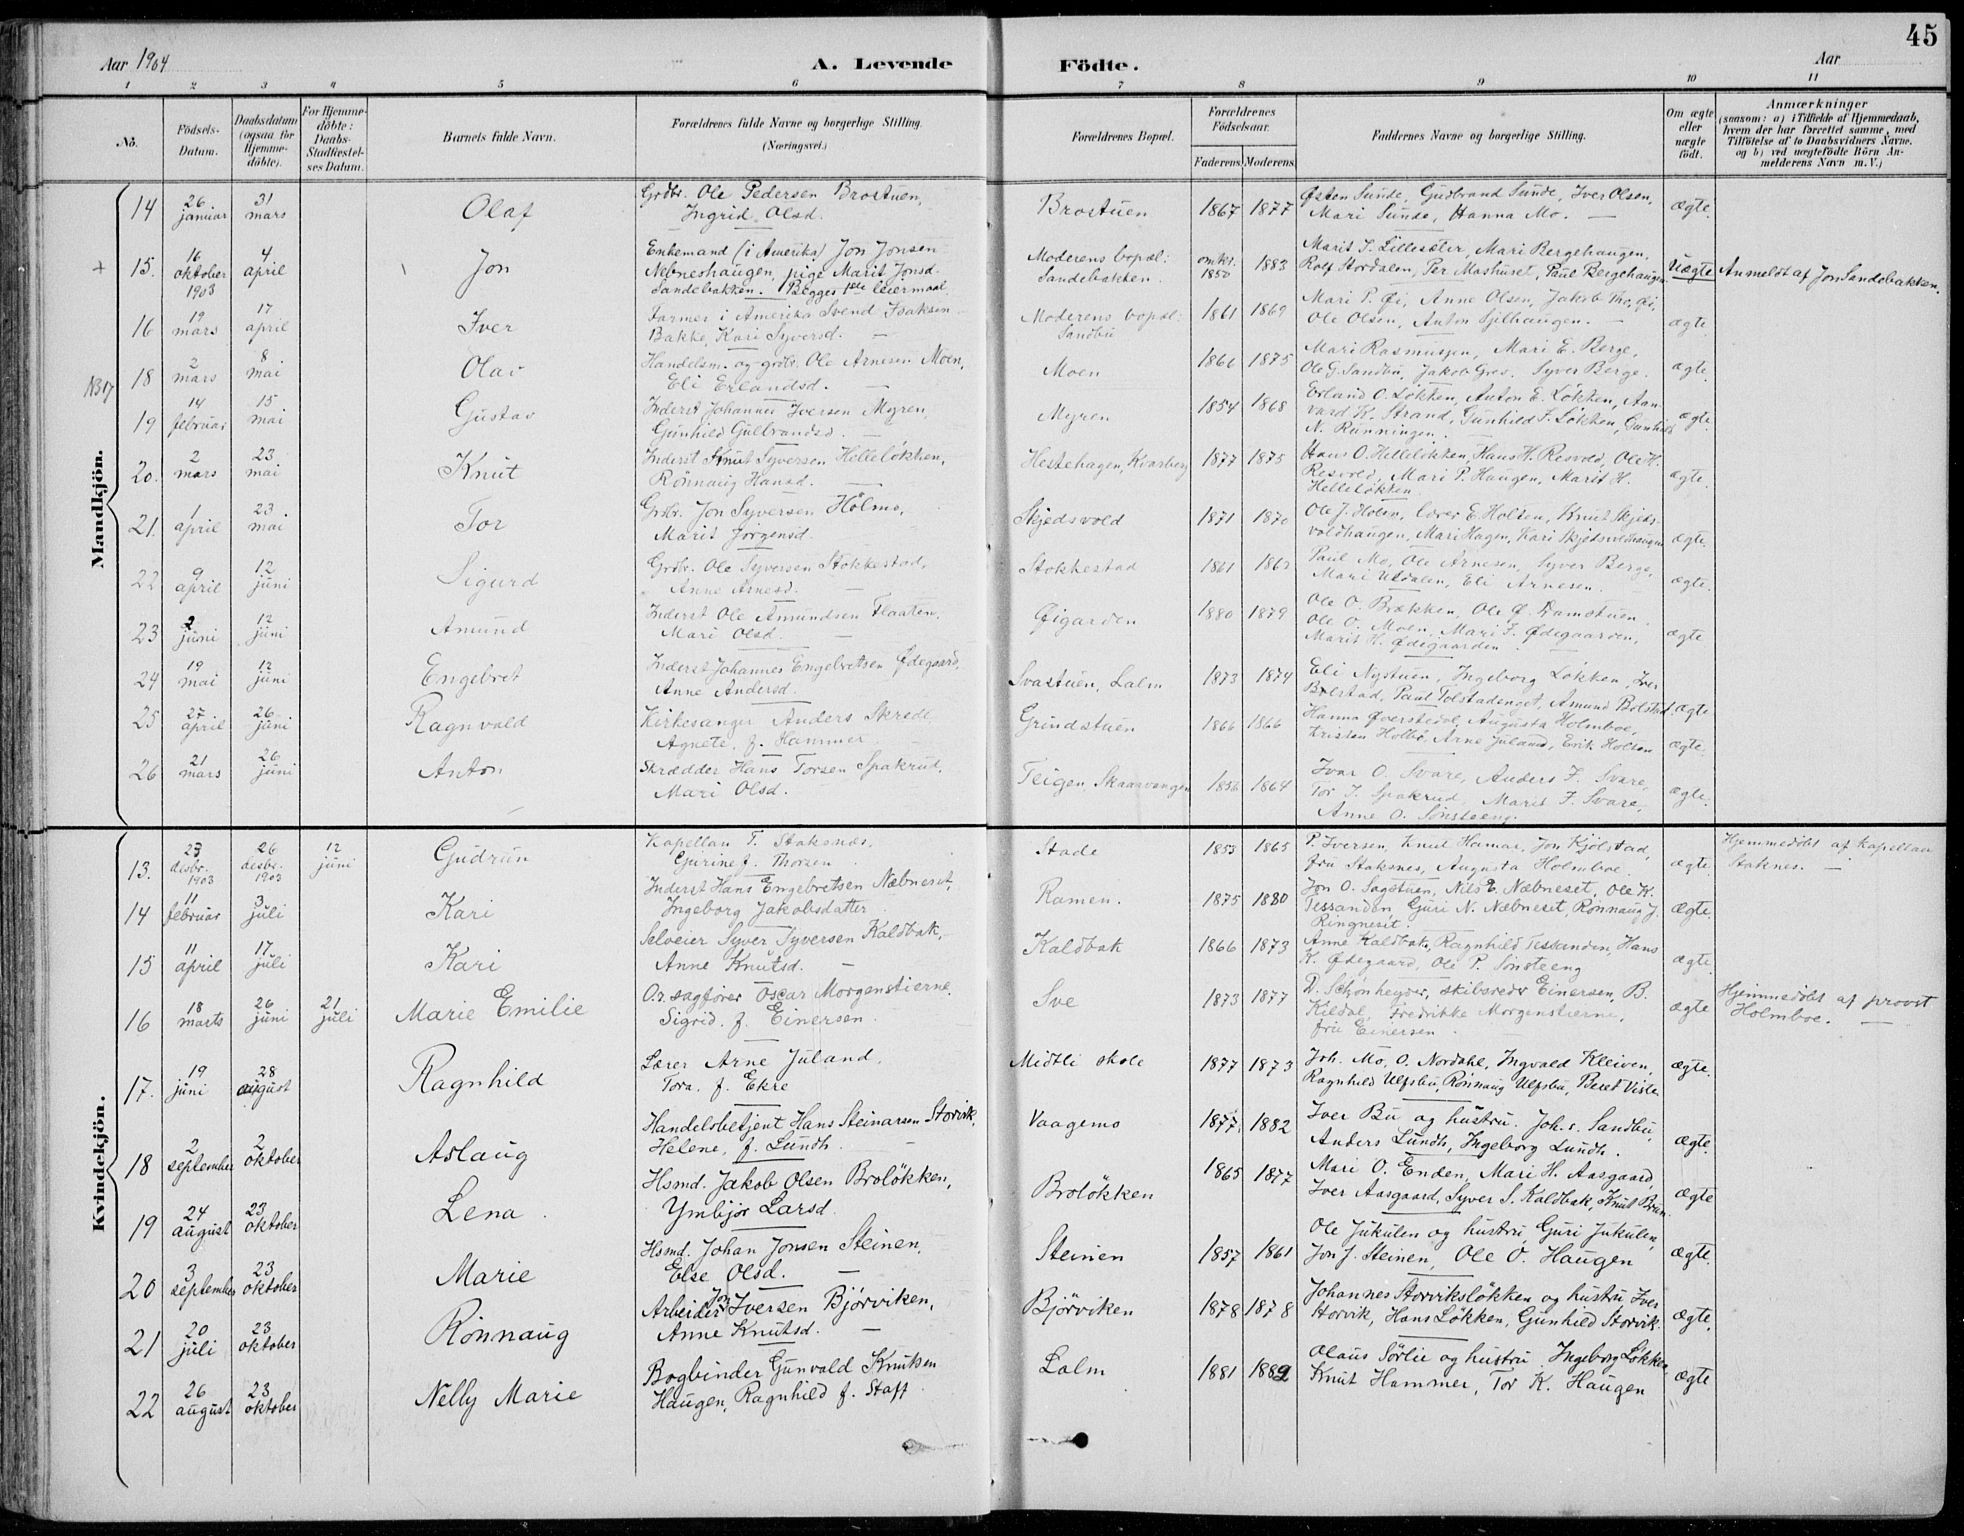 45
Aar 1904
A. Levende Födte.
Aar
1 2 3 4 5 6 7 8 9 10 11
No.
Födsels-Datum.
Daabsdatum (ogsaa for Hjemmedöbte).
For Hjemmedöbte: Daabs-Stadfæstelses Datum.
Barnets fulde Navn.
Forældrenes fulde Navne og borgerlige Stilling. (Næringsvei.)
Forældrenes Bopæl.
Forældrenes Födselsaar.
Faderens. Moderens.
Faddernes Navne og borgerlige Stilling.
Om ægte eller uægte födt.
Anmærkninger (saasom: a) i Tilfælde af Hjemmedaab, hvem der har forrettet samme, med Tilföielse af to Daabsvidners Navne. og b) ved uægtefödte Börn Anmelderens Navn m. V.)
Mandkjön.
14 26 januar 31 mars Olaf Grdbr. Ole Pedersen Brostuen, Ingrid Olsd. Brostuen 1867 1877 Østen Sunde, Gudbrand Sunde, Iver Olsen, Mari Sunde, Hanna Mo. — ægte.
+ 15. 16 oktober 1903 4 april Jon Enkemand (i Amerika) Jon Jonsen Nebneshaugen, pige Marit Jonsd. Sandebakken. Begges 1ste leiermaal. Moderens bopæl: Sandebakken. omkr. 1850 1883 Marit J. Lillesæter, Mari Bergehaugen, Rolf Stordalen, Per Mashuset, Paul Bergehaugen Uægte Anmeldt af Jon Sandebakken.
16 19 mars 17 april Iver Farmer i Amerika Svend Isaksen Bakke, Kari Syversd. — Moderens bopæl: Sandbu 1861 1869 Mari P. Øi, Anne Olsen, Jakob Tho. Øi, Ole Olsen, Anton Sjelhaugen. — ægte
NB 17 18 2 mars 8 mai Olav Handelsm. og grdbr. Ole Arnesen Moen, Eli Erlandsd. — Moen 1866 1875 Mari Rasmussen, Mari E. Berge, Ole G. Sandbu, Jakob Grev. Syver Berge. ægte.
19 14 februar 15 mai Gustav Inderst Johannes Iversen Myren, Gunhild Gulbrandsd. — Myren 1854 1868 Erland O. Løkken, Anton E. Løkken, Aanvard K. Strand, Gunhild J. Løkken, Gunhild N. Rünningen. ægte.
20. 2 mars 23 mai Knut Inderst Knut Syversen Helleløkken, Rønnaug Hansd. — Hestehagen, Kvarberg 1877 1875 Hans O. Helleløkken, Hans H. Resvold, Ole H. Resvold, Mari P. Haugen, Marit H. Helleløkken. ægte.
21. 1 april 23 mai Tor Grdbr. Jon Syversen Holmo, Marit Jørgensd. Skjedsvold 1871 1870 Ole J. Holen, lærer E. Holten, Knut Skjedsvoldhaugen, Mari Hagen, Kari Skjedsvoldhaugen ægte.
22 9 april 12 juni Sigurd Grdbr. Ole Syversen Stokkestad, Anne Arnesd. — Stokkestad 1861 Paul Mo, Ole Arnesen, Syver Berge, Mari Utdalen, Eli Arnesen. ægte.
23 2 juni 12 juni Amund Inderst Ole Amundsen Flaaten, Mari Olsd. — Øigarden 1880 1879 Ole O. Brækken, Ole Ø. Damstuen. Ole O. Moen, Mari F. Ødegaarden, Marit H. Ødegaarden. — ægte
24 19 mai 12 juni Engebret Inderst Johannes Engebretsen Ødegaard, Anne Andersd. Svastuen, Lalm 1873 1874 Eli Nystuen, Ingeborg Løkken, Iver Bolstad, Paul Tolstadenget, Amund Bolstad ægte
25 27 april 26 juni Ragnvald Kirkesanger Anders Skrede, Agnete, f. Hammer Grindstuen 1866 1866 Hanna Øverstedal, Augusta Holmboe, Kristen Holbø, Arne Juland, Erik Holten ægte.
26 21 mars 26 juni Anton Skrædder Hans Torsen Spakrud, Mari Olsd. Teigen, Skaarvangen 1856 1864 Ivar O. Svare, Anders J. Svare, Tor J. Spakrud, Marit J. Svare, Anne O. Sønsteeng. ægte.
Kvindekjön.
13. 23 desbr. 1903 26 desbr. 1903 12 juni Gudrun Kapellan T. Staksnes, Gurine f. Thorsen Stade 1853 1865 P. Iversen, Knut Hamar, Jon Kjölstad, fru Staksnes, Augusta Holmboe. ægte. Hjemmedöbt af kapellan Staknes. —
14 11 februar 3 juli Kari Inderst Hans Engebretsen Næbneset, Ingeborg Jakobsdatter Ramen. 1875 1880 Jon O. Sagstuen, Nils E. Næbneset, Ole K. Tessanden, Guri N. Næbneset, Rønnaug J. Ringneset. ægte.
15 11 april 17 juli Kari Selveier Syver Syversen Kaldbak, Anne Knutsd. — Kaldbak 1866 1873 Anne Kaldbak, Ragnhild Tessanden, Hans K. Ødegaard, Ole P. Sønsteeng ægte.
16 18 marts 26 juni 21 juli Marie Emilie O.r. sagfører Oscar Morgenstierne, Sigrid, f. Einersen. Sve 1873 1877 D. Schønheyder, skibsreder Einersen, B. Kildal, Fredrikke Morgenstierne, fru Einersen. ægte Hjemmedöbt af provst Holmboe. —
17. 19 juni 28 august Ragnhild Lærer Arne Juland, Tora, f. Ekre Midtli skole 1877 1873 Joh. Mo, O. Nordahl, Ingvald Kleiven, Ragnhild Ulfsbu, Rønnaug Ulfsbu, Beret Viste ægte.
18 2 september 2 oktober Aslaug Handelsbetjent Hans Steinarsen Storvik, Helene, f. Lundh. — Vaagemo 1877 1882 Iver Bu og hustru. Joh. s. Sandbu, Anders Lundh, Ingeborg Lundh. ægte.
19 24 august 23 oktober Lena. Hsmd. Jakob Olsen Broløkken, Ymbjør Larsd. Broløkken 1865 1877 Mari O. Enden, Mari H. Aasgaard, Iver Aasgaard, Syver S. Kaldbak, Knut Brun. ægte
20 3 september 23 oktober Marie Hsmd. Johan Jonsen Steinen, Else Olsd. — Steinen 1857 1861 Ole Jukulen og hustru, Guri Jukulen, Jon J. Steinen, Ole O. Haugen ægte.
21 20 juli 23 oktober Rønnaug Arbeider Jon Iversen Bjørviken, Anne Knutsd. — Bjørviken 1878 1878 Johannes Storviksløkken og hustru, Iver Storvik, Hans Løkken, Gunhild Storvik. ægte,
22 26 august 23 oktober Nelly Marie Bogbinder Gunvald Knutsen Haugen, Ragnhild f. Staff Lalm 1881 1882 Olaus Sørlie og hustru, Ingeborg Løkken, Knut Hammer, Tor K. Haugen ægte